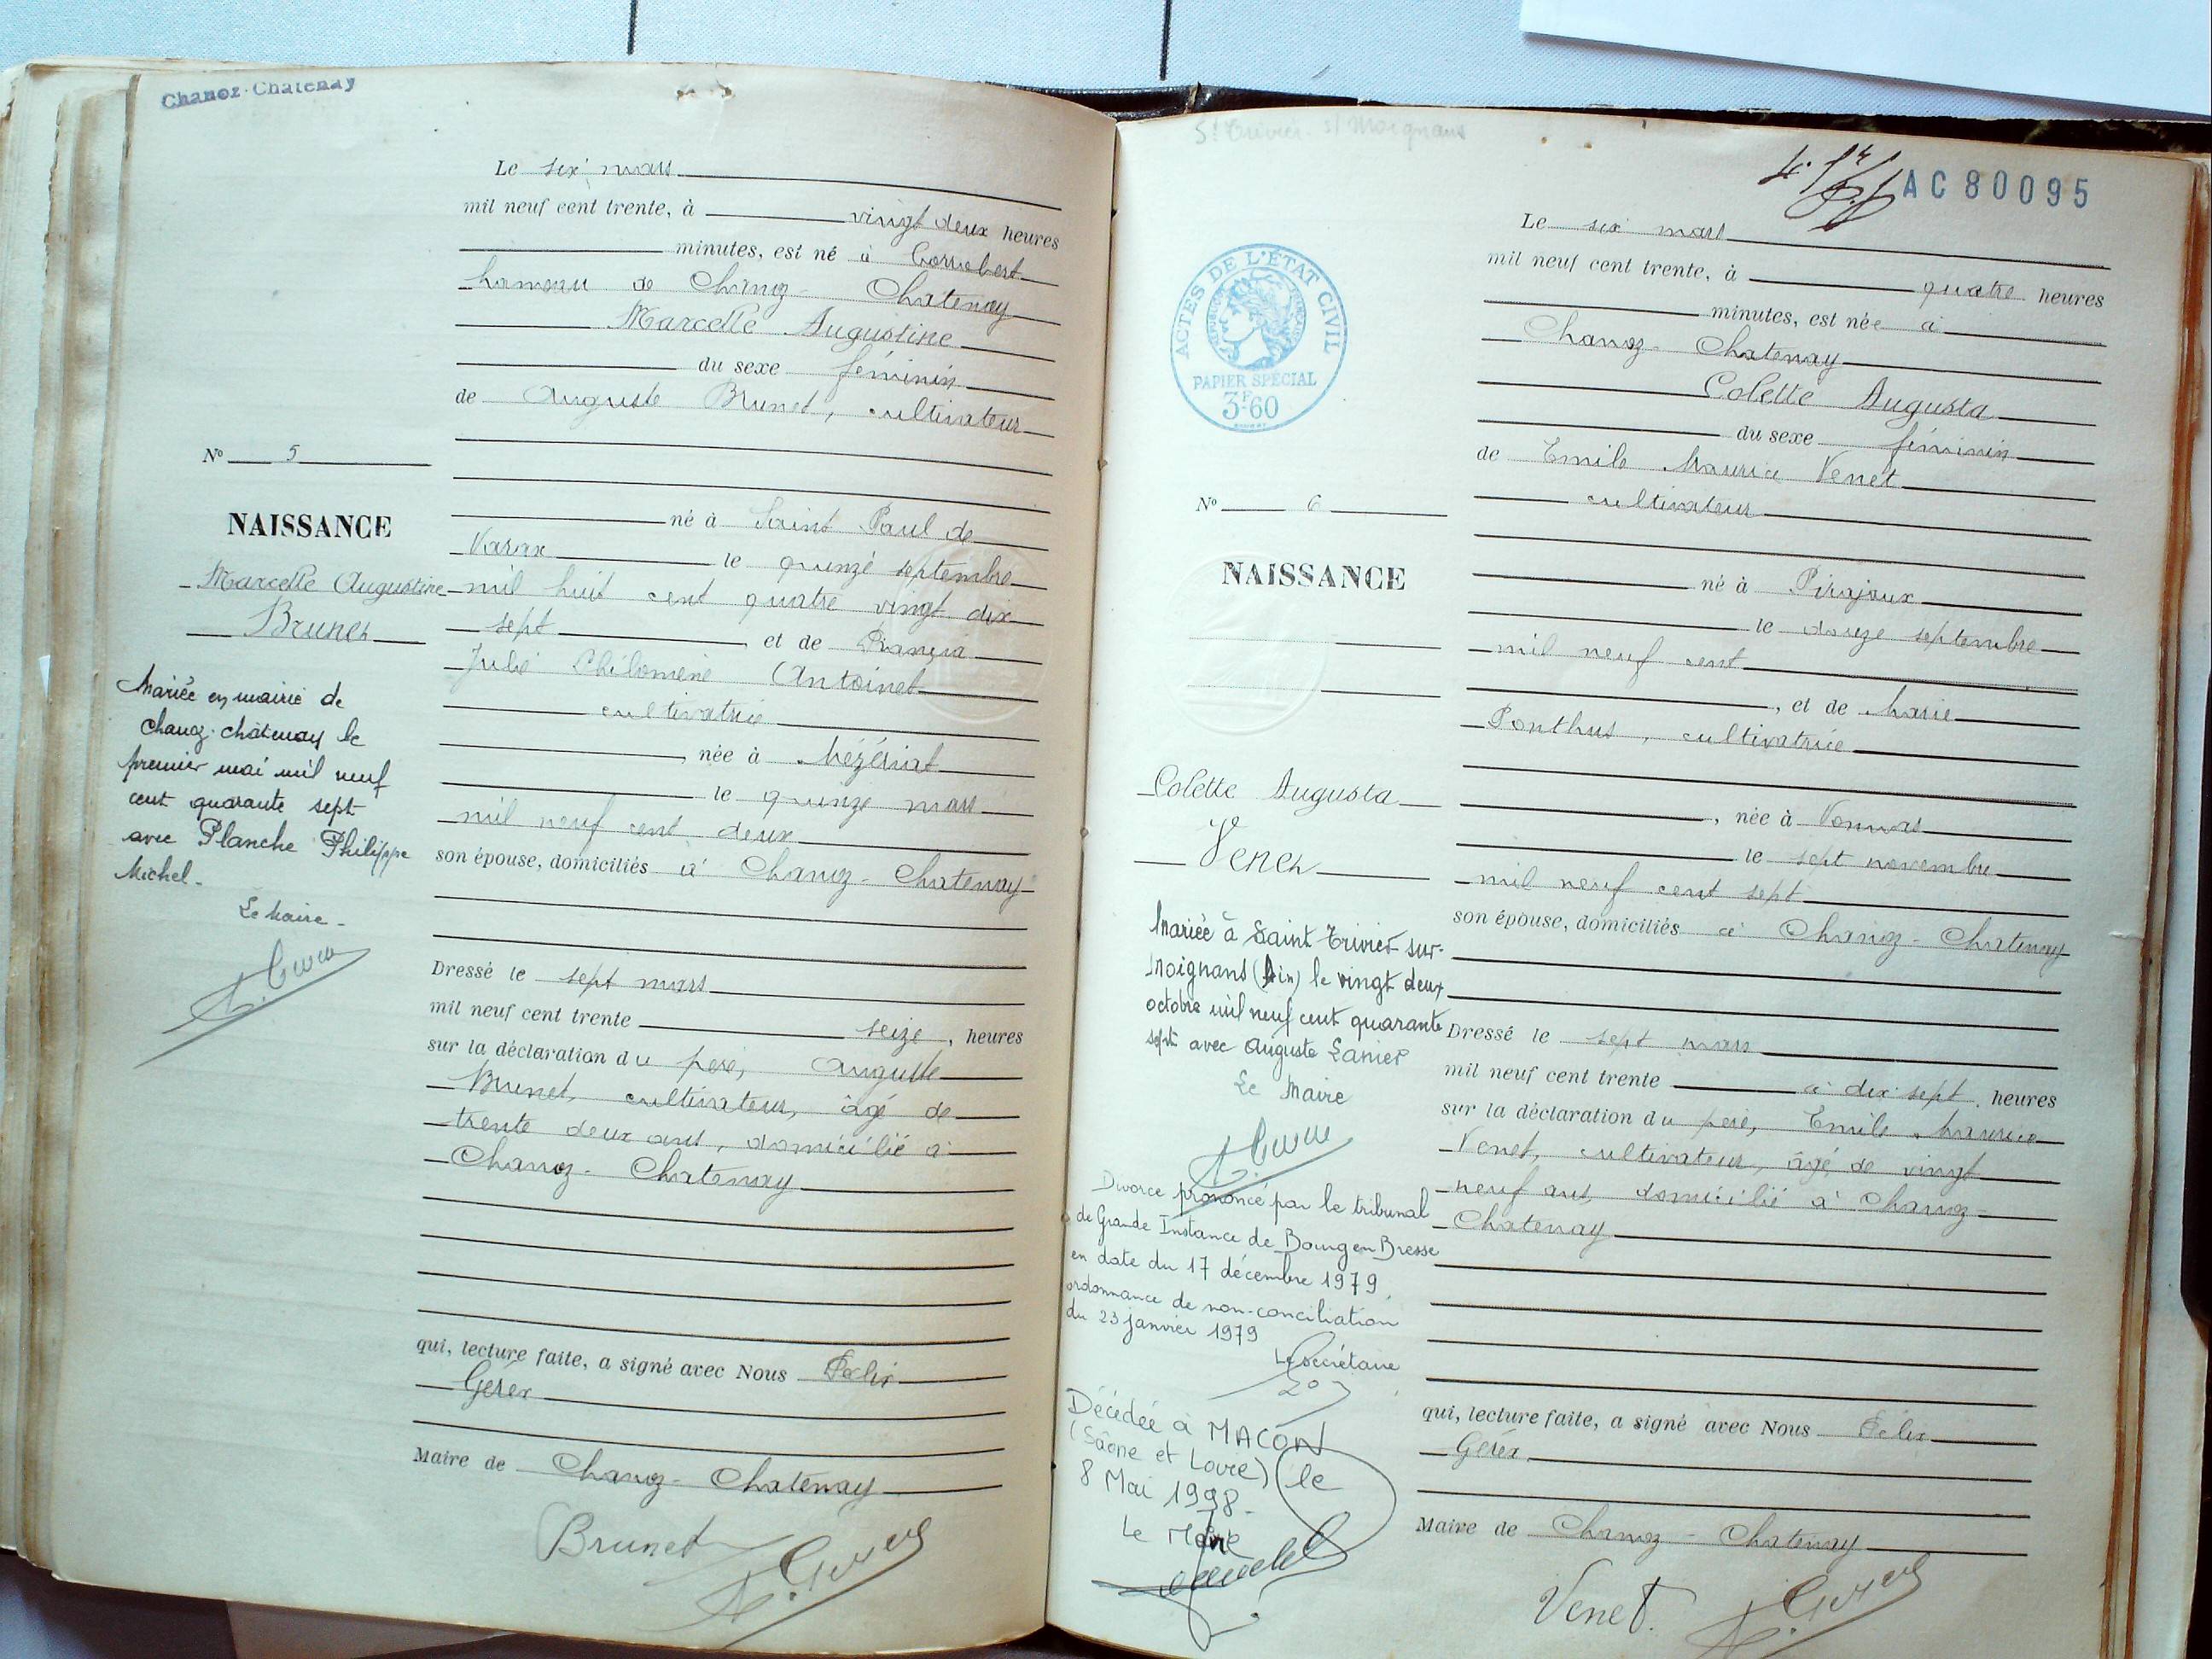 Chanoz-Chatenay
Le six mars
mil neuf cent trente, à vingt deux heures
minutes, est né à Corrobert
hameau de Chanoz-Chatenay
Marcelle Augustine
du sexe féminin
de Auguste Brunet, cultivateur
né à Saint Paul de
Varax le quinze septembre
mil huit cent quatre vingt dix
sept et de Francia
Julie Philomène Antoinet
cultivatrice
née à Mézériat
le quinze mars
mil neuf cent deux
son épouse, domiciliés à Chanoz-Chatenay
Dressé le sept mars
mil neuf cent trente seize, heures
sur la déclaration du père, Auguste
Brunet, cultivateur, âgé de
trente deux ans, domicilié à
Chanoz-Chatenay
qui, lecture faite, a signé avec Nous Félix
Gérex
Maire de Chanoz-Chatenay
Brunet
Nº 5
NAISSANCE
Marcelle Augustine
Brunet
Mariée en mairie de
Chanoz-Châtenay le
premier mai mil neuf
cent quarante sept
avec Planche Philippe
Michel.
Le Maire
St Trivier s/ Moignans
AC80095
ACTES DE L'ÉTAT CIVIL
RÉPUBLIQUE FRANÇAISE
PAPIER SPÉCIAL
3F60
Le six mars
mil neuf cent trente, à quatre heures
minutes, est née à
Chanoz-Chatenay
Colette Augusta
du sexe féminin
de Emile Maurice Venet
cultivateur
né à Pirajoux
le douze septembre
mil neuf cent
, et de Marie
Ponthus, cultivatrice
, née à Vonnas
le sept novembre
mil neuf cent sept
son épouse, domiciliés à Chanoz-Chatenay
Dressé le sept mars
mil neuf cent trente à dix-sept, heures
sur la déclaration du père, Emile Maurice
Venet, cultivateur, âgé de vingt
neuf ans, domicilié à Chanoz-
Chatenay
qui, lecture faite, a signé avec Nous Félix
Gérex
Maire de Chanoz-Chatenay
Venet.
Nº 6
NAISSANCE
Colette Augusta
Venet
Mariée à Saint Trivier-sur-
Moignans (Ain) le vingt deux
octobre mil neuf cent quarante
sept avec Auguste Lanier
Le Maire
Divorce prononcé par le tribunal
de Grande Instance de Bourg en Bresse
en date du 17 décembre 1979,
ordonnance de non-conciliation
du 23 janvier 1979
Le Secrétaire
Décédée à MACON
(Saône et Loire) le
8 Mai 1998.
Le Maire